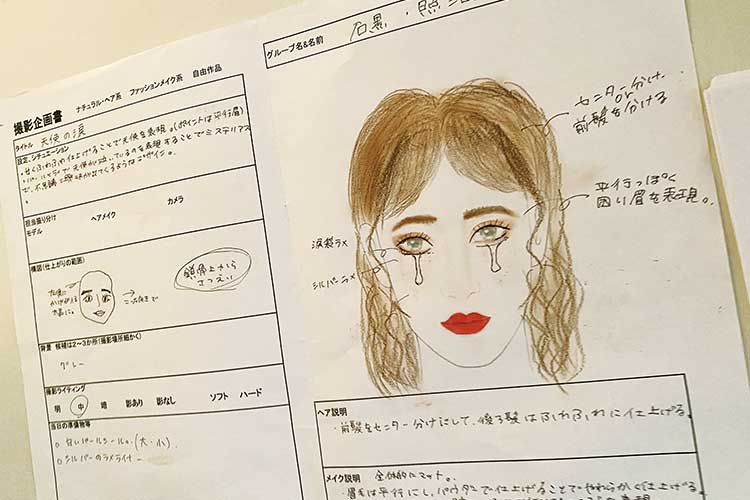 ナチュラル・ヘア系 ファッションメイク系 自由作品
撮影企画書
タイトル 天使の涙
設定、シチュエーション
甘くふわふわ仕上げることで天使を表現。(ポイントは平行眉)
パールとラメで天使が泣いているのを表現することでミステリアス
で、不思議と興味がでてくるようなデザイン。
担当振り分け
モデル ヘアメイク カメラ
構図(仕上がりの範囲)
鎖骨上から
さつえい
背景 候補は2~3か所(撮影場所細かく)
グレー
撮影ライティング
明 中 暗 影あり 影なし ソフト ハード
当日の準備物等
○ 白いパールシール。(大・小)
○ シルバーのラメライナー
グループ名&名前 石黒
センター分け
or
前髪を分ける
平行っぽく
困り眉を表現。
涙袋ラメ
シルバーラメ
ヘア説明
・前髪をセンター分けにして、後ろ髪はふわふわに仕上げる。
メイク説明 全体的にマット。
・眉毛は平行にし、パウダーで仕上げることでやわらかく仕上げる。